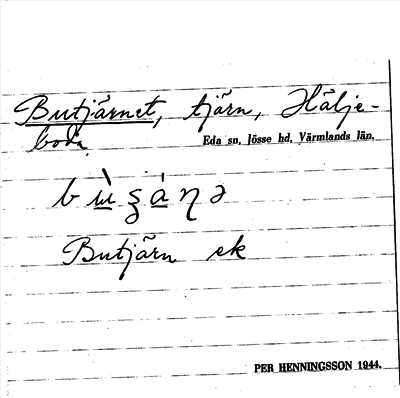 Butjärnet, tjärn, Hälje-
boda
Eda sn, Jösse hd, Värmlands län.
Butjärn ek
PER HENNINGSSON 1944.